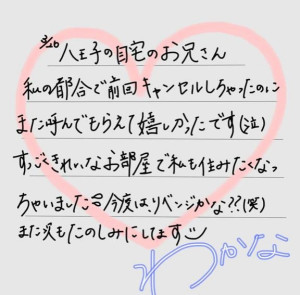 3/20
八王子の自宅のお兄さん
私の都合で前回キャンセルしちゃったのに
また呼んでもらえて嬉しかったです(泣)
すっごくきれいなお部屋で私も住みたくなっ
ちゃいました 今度は、リベンジかな??(笑)
また次もたのしみにしてます
わかな